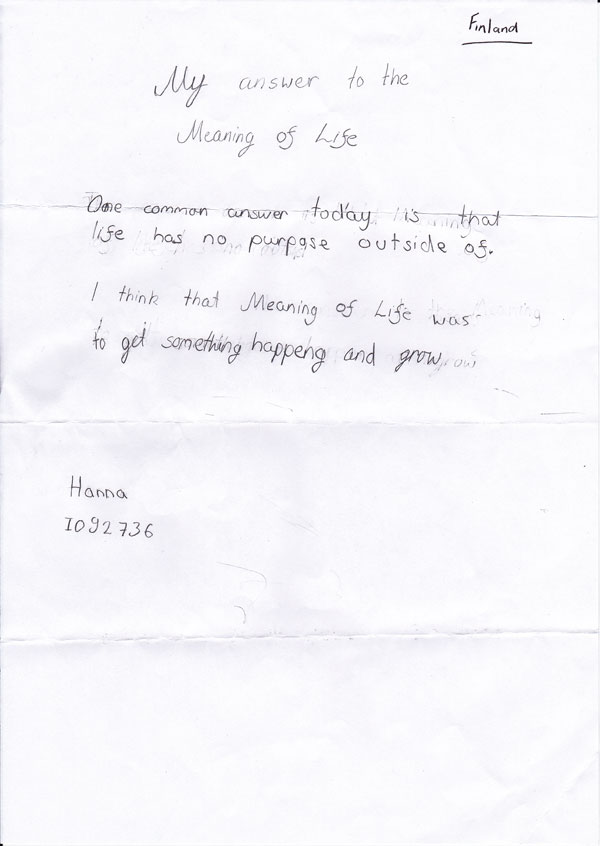 Finland
My answer to the
Meaning of Life
One common answer today is that
life has no purpose outside of.
I think that Meaning of Life was
to get something happeng and grow
Hanna
1092736